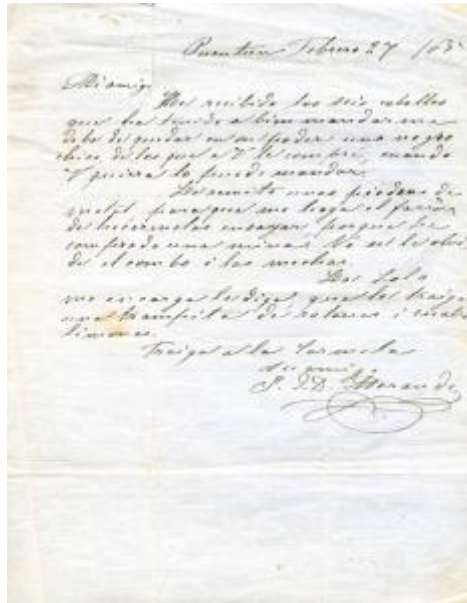 Febrero 27 /63
Mi amigo
He recibido los seis caballos
que ha tenido a bien mandarme
debe de quedar en su poder uno negro
chico, de los que a V le compré, cuando
V quiera lo puede mandar.
Le remito unas piedras de
metal para que me haga el favor
de hacérmelas ensayar, porque he
comprado una mina. No se le olvi
de el combo i las mechas.
me encarga les diga que les traiga
una trampita de ratones i
limones.
Traiga a la Carmela
Su amigo